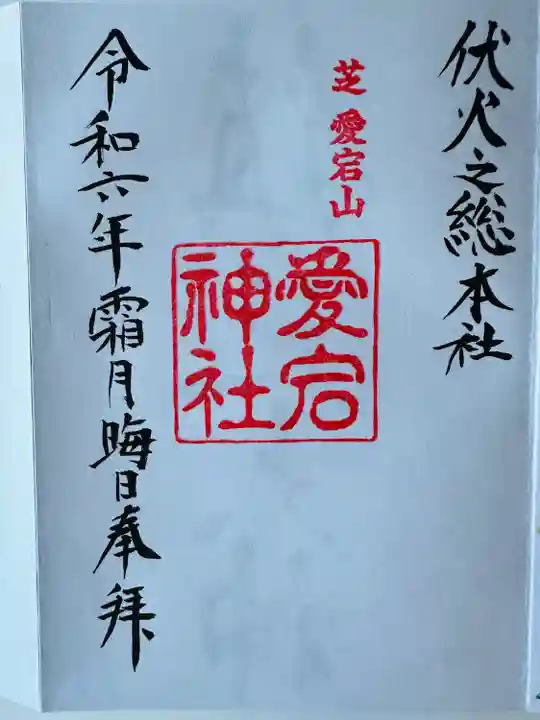 伏火之総本社
芝 愛宕山
愛宕
神社
令和六年霜月晦日奉拝